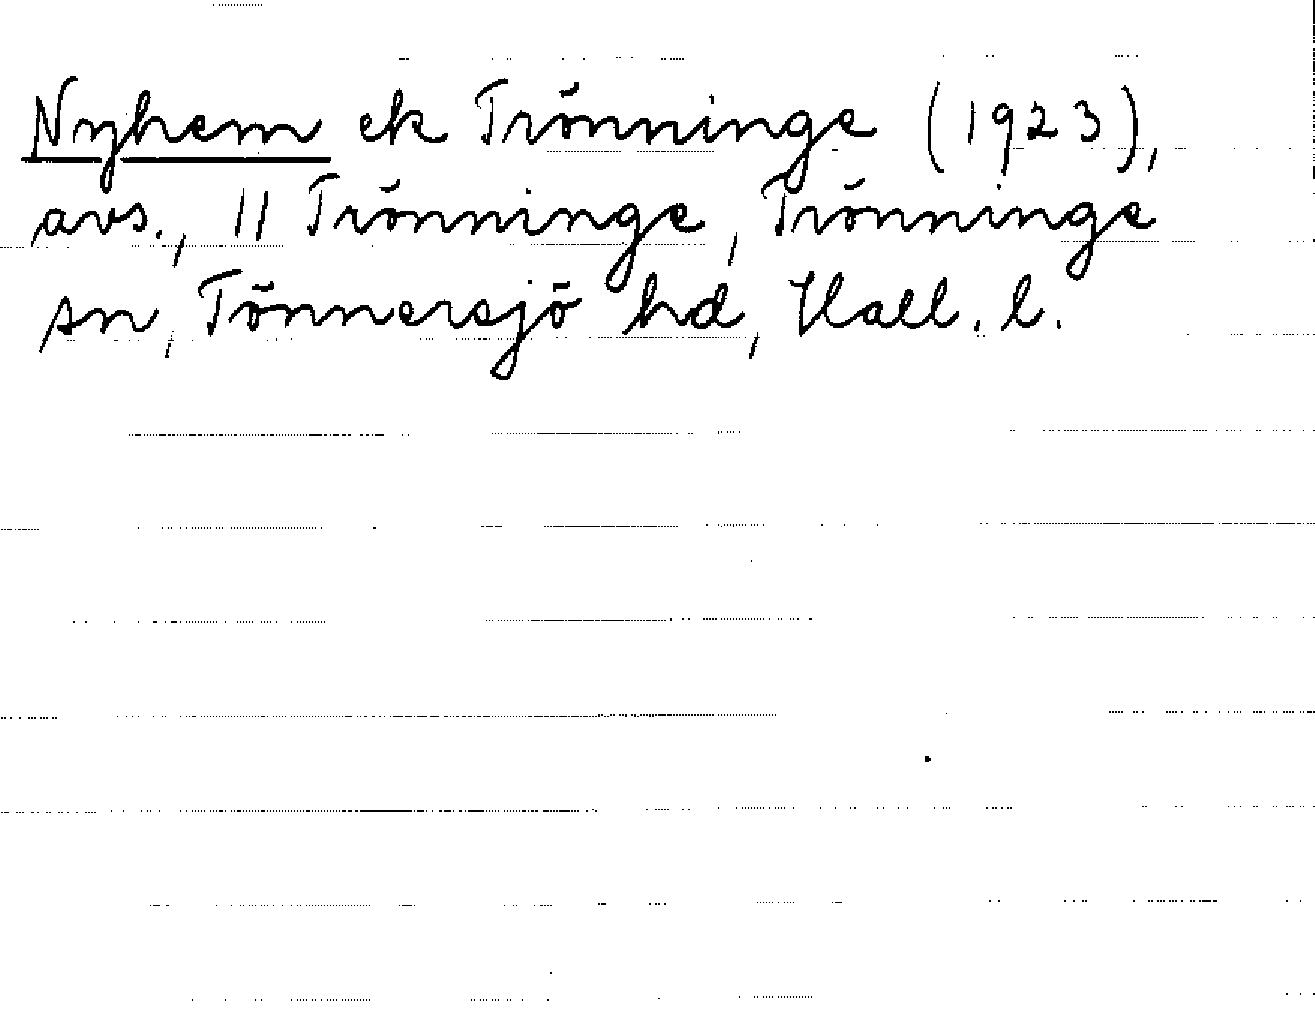 Nyhem ek Trönninge (1923),
avs., 11 Trönninge, Trönninge
sn, Tönnersjö hd, Hall. l.